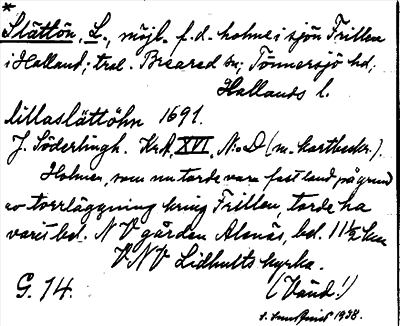 *
Slättön, L., möjl. f.d. holme i sjön Frillen
i Halland; trol. Breared sn; Tönnersjö hd;
Hallands l.
lillaslättöhn 1691.
J. Söderlingh. KrA, XVI, N:o D (m. kartbeskr.).
Holmen, som nu torde vara fast land på grund
av torrläggning kring Frillen, torde ha
varit bel. NV gården Alsnäs, bel. 11 1/2 km
VNV Lidhults kyrka.
G. 74. (Vänd!)
1938.